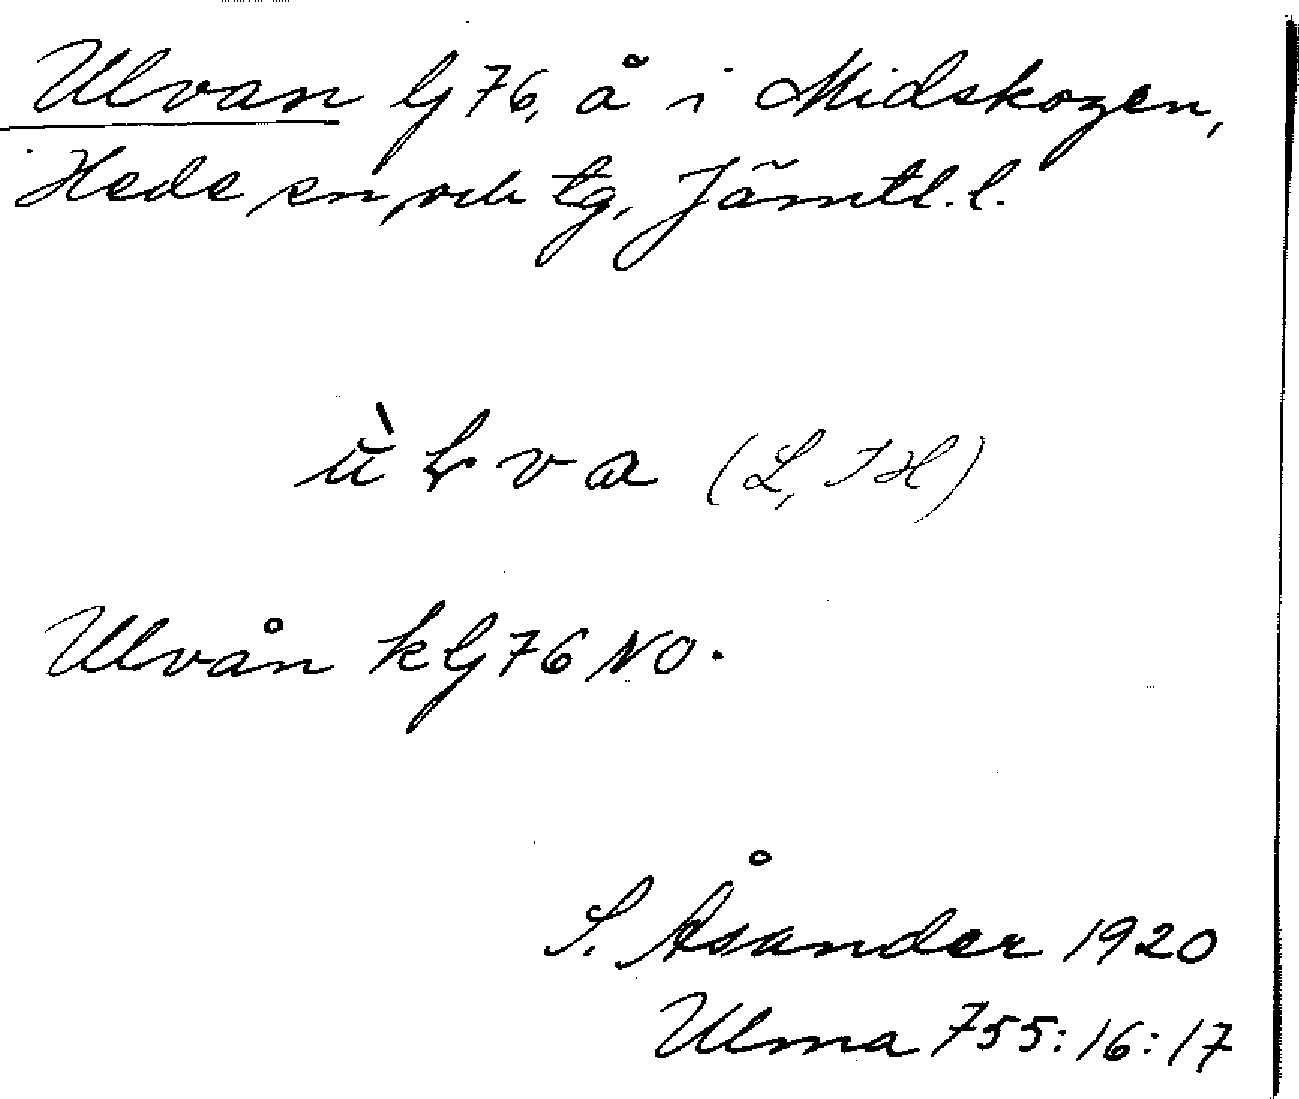 Ulvan G 76, å i Midskogen,
Hede sn, och tg, Jämtl. l.
ùLva (L, JH)
Ulvån kG 76 NO.
S. Åsander 1920
Ulma 755:16:17